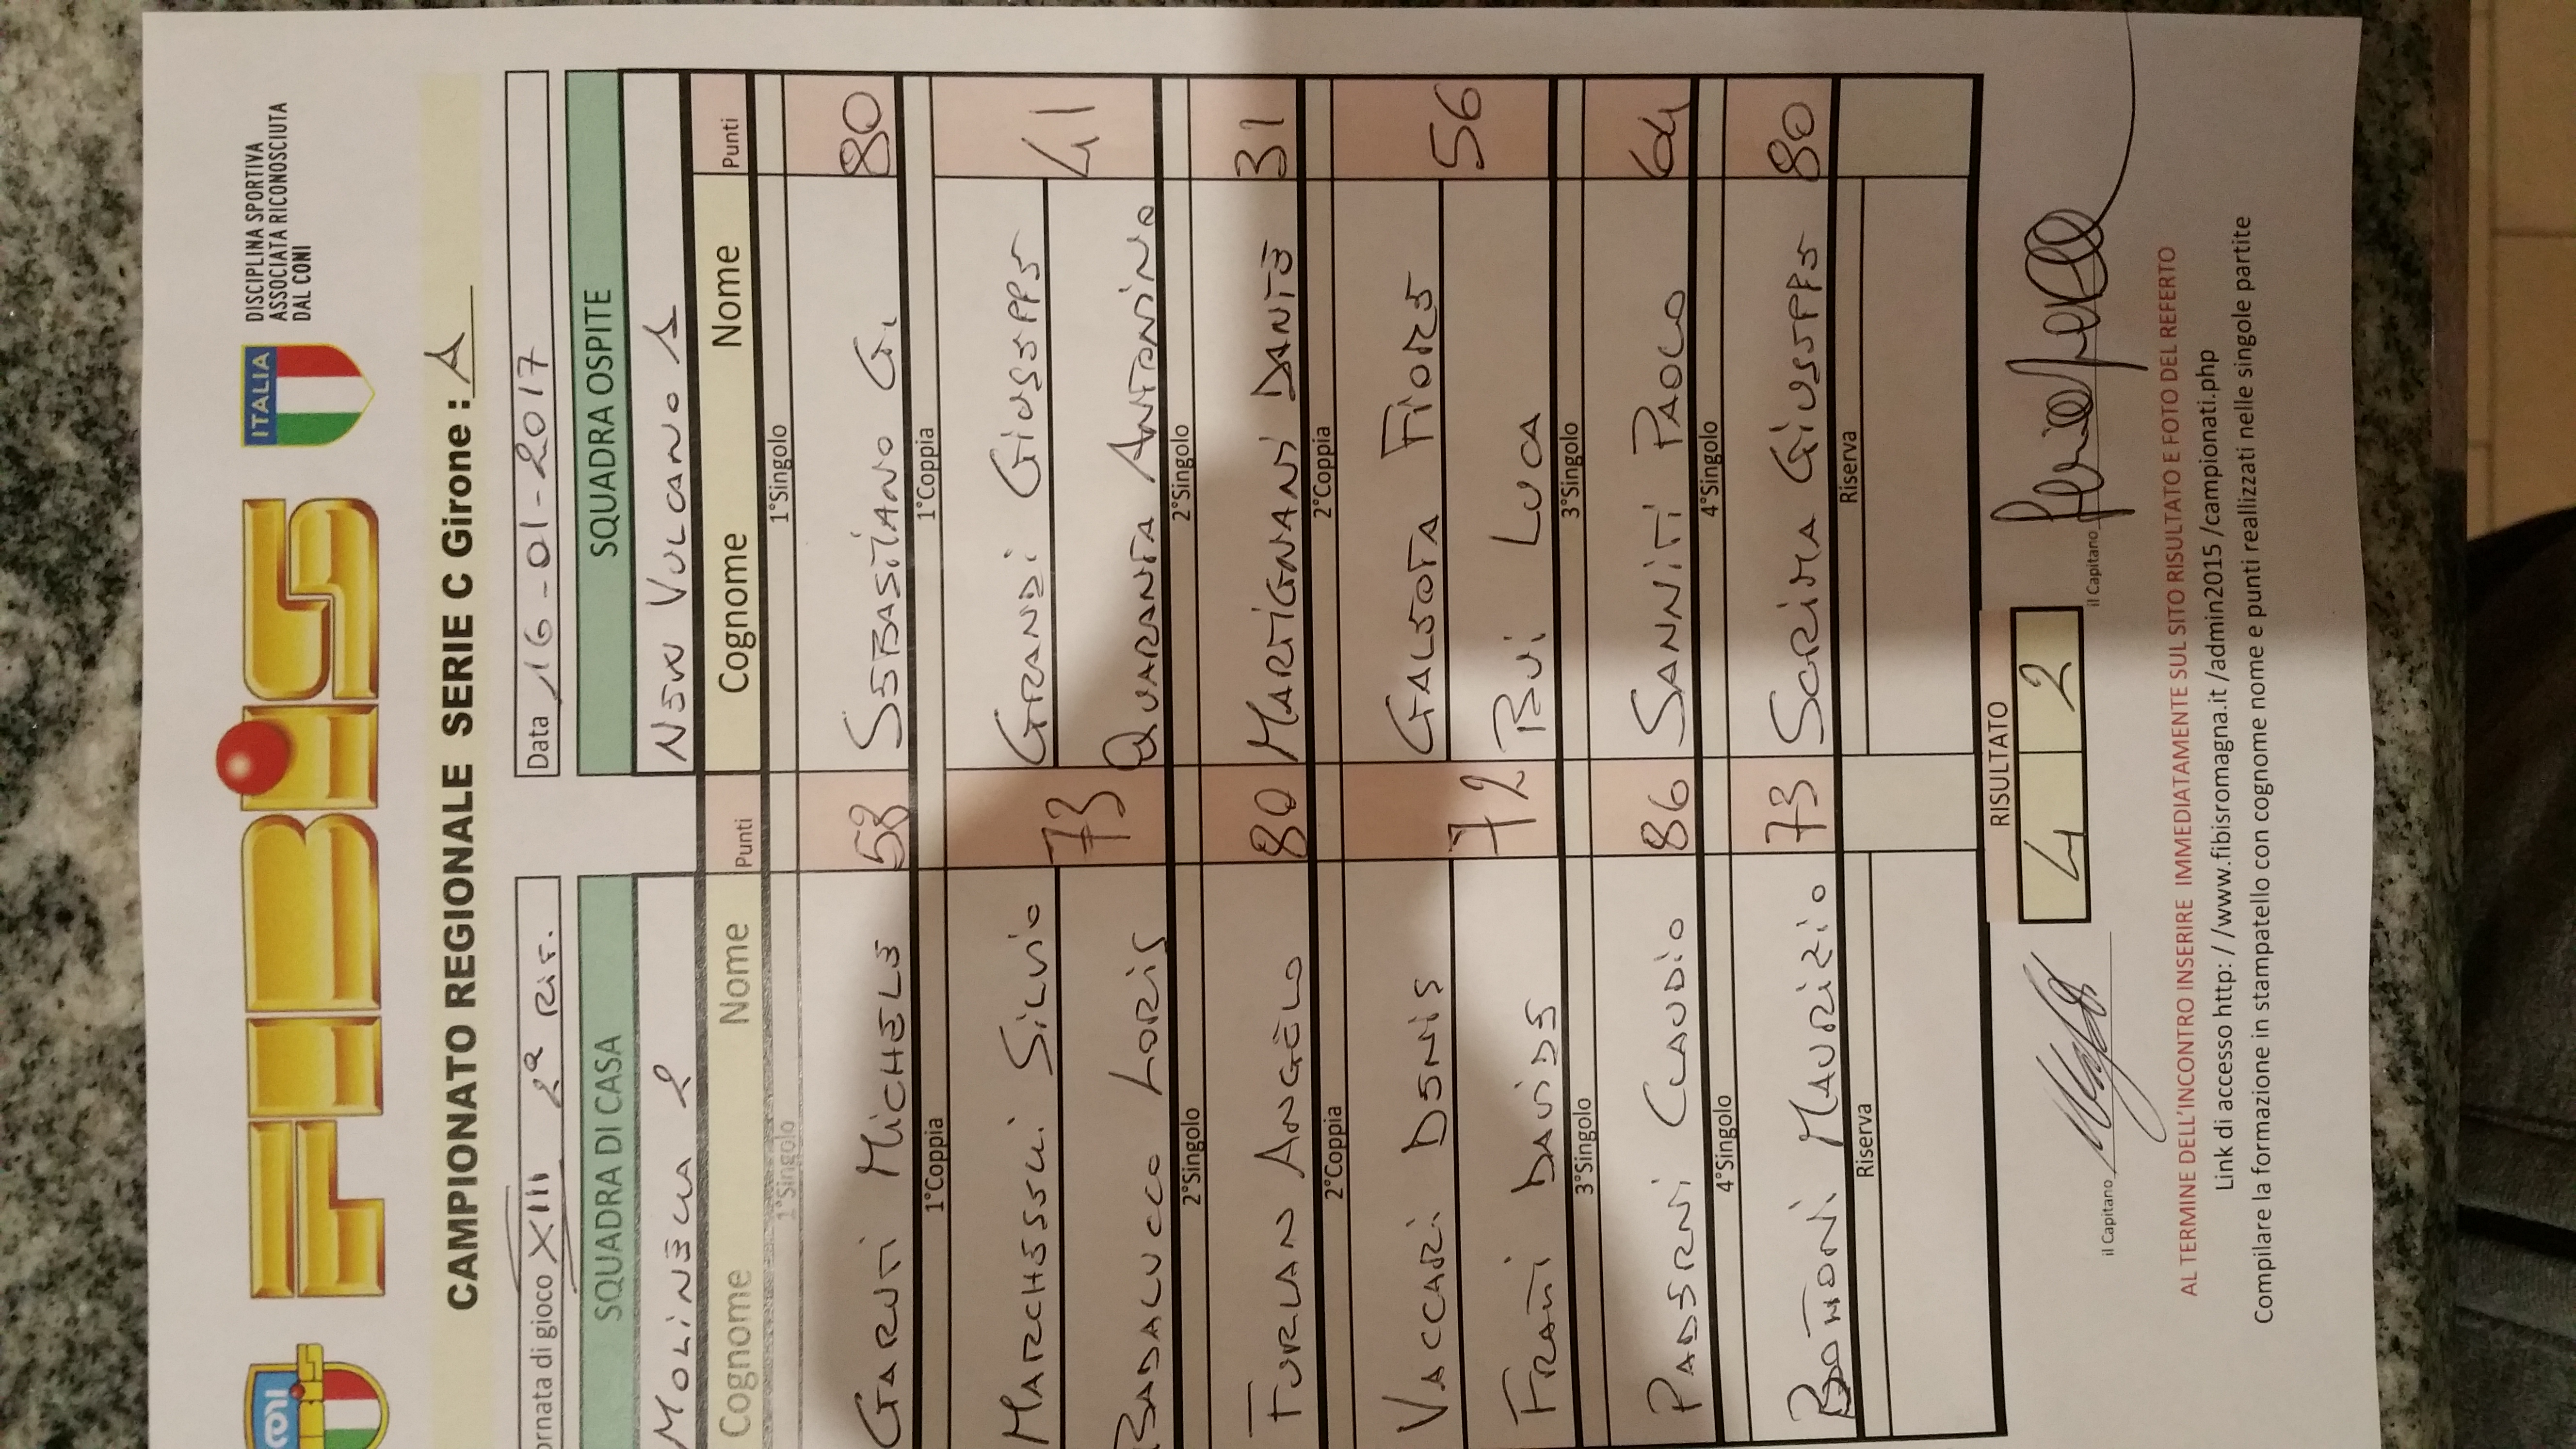 FIBiS
ITALIA
DISCIPLINA SPORTIVA
ASSOCIATA RICONOSCIUTA
DAL CONI
CAMPIONATO REGIONALE SERIE C Girone : A
ornata di gioco XIII 2ª Rit. Data 16-01-2017
SQUADRA DI CASA SQUADRA OSPITE
MOLINELLA 2 NEW VULCANO 1
Cognome Nome Punti Cognome Nome Punti
1°Singolo 1°Singolo
GARUTI MICHELE 58 SEBASTIANO G. 80
1°Coppia 1°Coppia
MARCHESELLI SILVIO GRANDI GIUSEPPE
73 41
BADALUCCO LORIS QUARANTA ANTONINO
2°Singolo 2°Singolo
FURLAN ANGELO 80 MARTIGNANI DANTE 31
2°Coppia 2°Coppia
VACCARI DENIS GALEOTA FIORE
72 56
FRATTI DAVIDE BUI LUCA
3°Singolo 3°Singolo
PADERNI CLAUDIO 86 SANNITI PAOLO 64
4°Singolo 4°Singolo
BOTTONI MAURIZIO 73 SCRIMA GIUSEPPE 80
Riserva Riserva
RISULTATO
4 2
il Capitano il Capitano
AL TERMINE DELL'INCONTRO INSERIRE IMMEDIATAMENTE SUL SITO RISULTATO E FOTO DEL REFERTO
Link di accesso http: / /www.fibisromagna.it /admin2015 /campionati.php
Compilare la formazione in stampatello con cognome nome e punti realizzati nelle singole partite